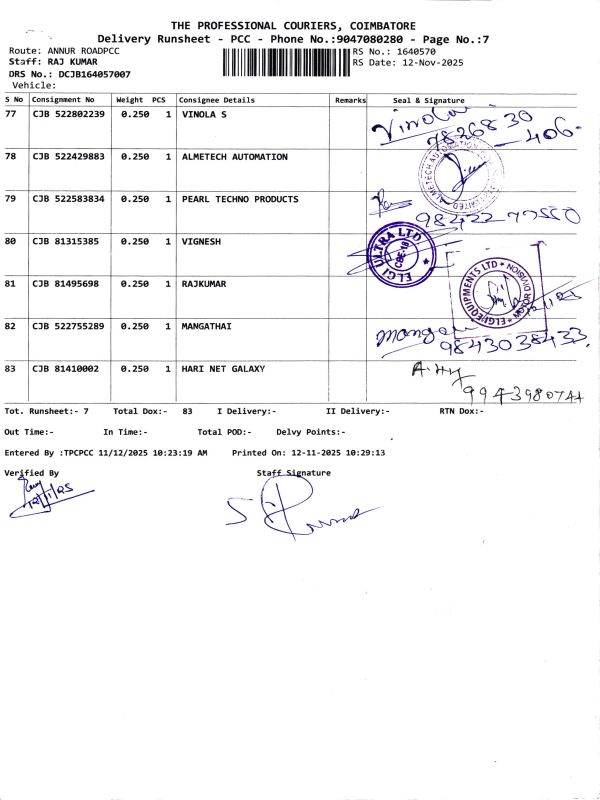 THE PROFESSIONAL COURIERS, COIMBATORE
Delivery Runsheet - PCC - Phone No.:9047080280 - Page No.:7
Route: ANNUR ROADPCC RS No.: 1640570
Staff: RAJ KUMAR RS Date: 12-Nov-2025
DRS No.: DCJB164057007
Vehicle:
S No Consignment No Weight PCS Consignee Details Remarks Seal & Signature
77 CJB 522802239 0.250 1 VINOLA S Vinola
7826830
406.
78 CJB 522429883 0.250 1 ALMETECH AUTOMATION
79 CJB 522583834 0.250 1 PEARL TECHNO PRODUCTS
98422 77550
80 CJB 81315385 0.250 1 VIGNESH ELGI ULTRA LTD
81 CJB 81495698 0.250 1 RAJKUMAR ELGI EQUIPMENTS LTD * MOTOR DIVISION
82 CJB 522755289 0.250 1 MANGATHAI
9843038433.
83 CJB 81410002 0.250 1 HARI NET GALAXY
9943980744
Tot. Runsheet:- 7 Total Dox:- 83 I Delivery:- II Delivery:- RTN Dox:-
Out Time:- In Time:- Total POD:- Delvy Points:-
Entered By :TPCPCC 11/12/2025 10:23:19 AM Printed On: 12-11-2025 10:29:13
Verified By Staff Signature
12/11/25